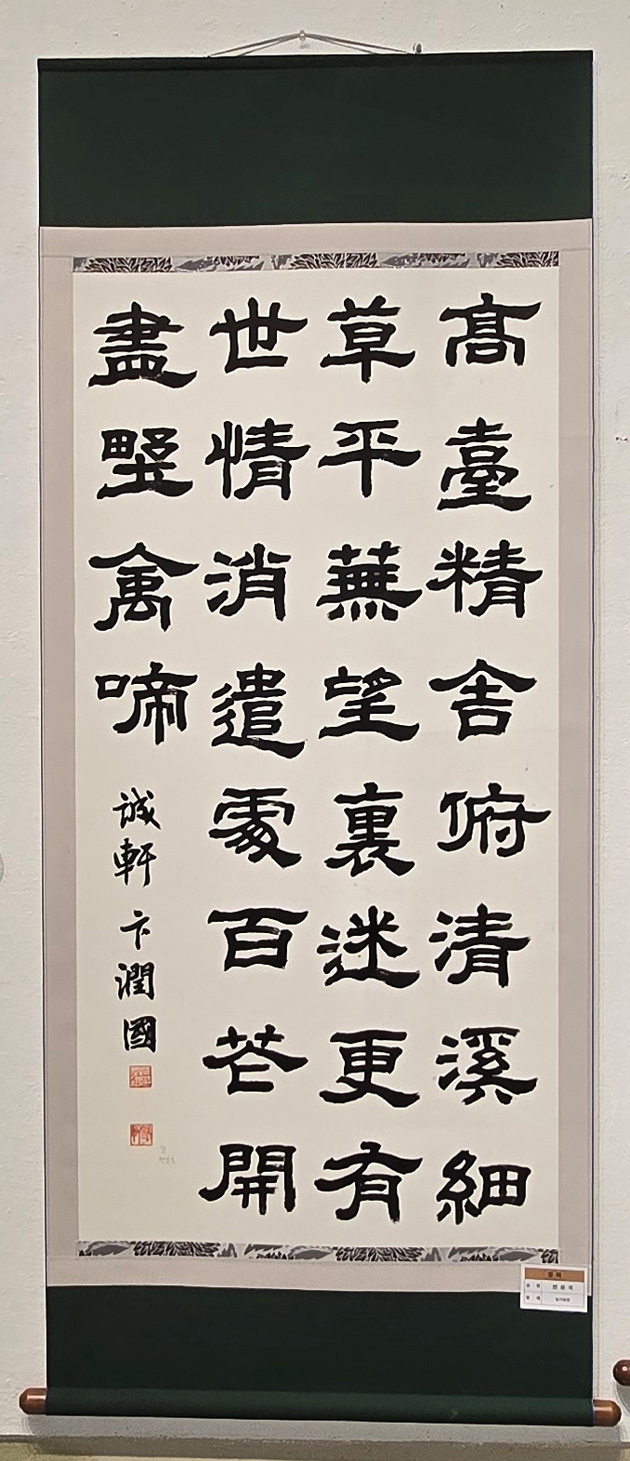 高臺精舍俯清溪細
草平蕪望裏迷更有
世情消遣處百花開
盡野禽啼
誠軒 卞潤國